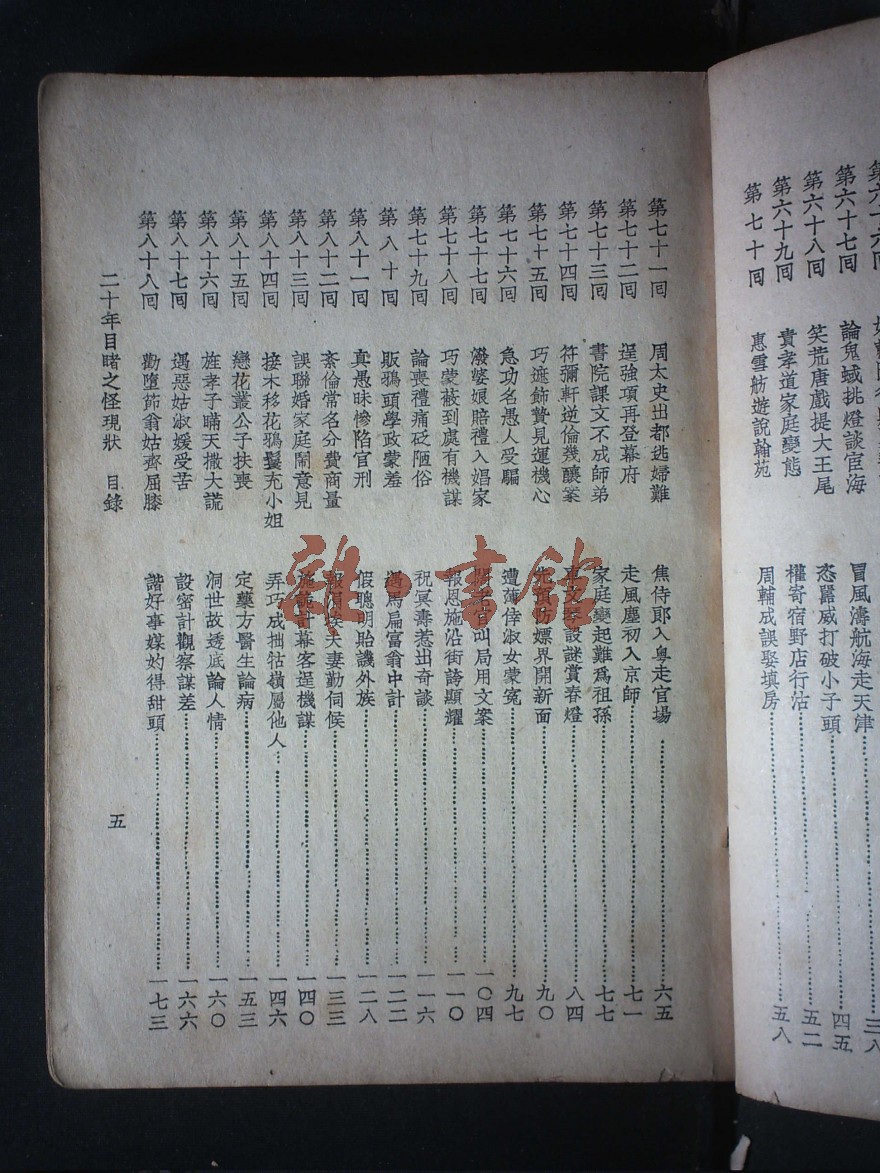 第六十七回　論鬼蜮挑燈談宦海　冒風濤航海走天津　三八
第六十八回　笑荒唐戲提大王尾　恣囂威打破小子頭　四五
第六十九回　責孝道家庭變態　權寄宿野店行沽　五二
第七十回　惠雪舫遊說翰苑　周輔成誤娶填房　五八
第七十一回　周太史出都逃婦難　焦侍郎入粵走官場　六五
第七十二回　逞強項再登幕府　走風塵初入京師　七一
第七十三回　書院課文不成師弟　家庭變起難爲祖孫　七七
第七十四回　符彌軒逆倫幾釀案　車文琴設謎賞春燈　八四
第七十五回　巧遮飾贄見運機心　先預防嫖界開新面　九〇
第七十六回　急功名愚人受騙　遭薄倖淑女蒙寃　九七
第七十七回　潑婆娘賠禮入娼家　闊老官叫局用文案　一〇四
第七十八回　巧蒙蔽到處有機謀　報恩施沿街誇顯耀　一一〇
第七十九回　論喪禮痛砭陋俗　祝冥壽惹出奇談　一一六
第八十回　販鴉頭學政蒙羞　遇馬扁富翁中計　一二二
第八十一回　真愚昧慘陷官刑　假聰明貽譏外族　一二八
第八十二回　紊倫常名分費商量　報涓埃夫妻勤伺候　一三三
第八十三回　誤聯婚家庭鬧意見　施詭計幕客逞機謀　一四〇
第八十四回　接木移花鴉鬟充小姐　弄巧成拙牯嶺屬他人　一四六
第八十五回　戀花叢公子扶喪　定藥方醫生論病　一五三
第八十六回　旌孝子瞞天撒大謊　洞世故透底論人情　一六〇
第八十七回　遇惡姑淑媛受苦　設密計觀察謀差　一六六
第八十八回　勸墮節翁姑齊屈膝　諧好事媒妁得甜頭　一七三
二十年目睹之怪現狀　目錄　五
雜·書館